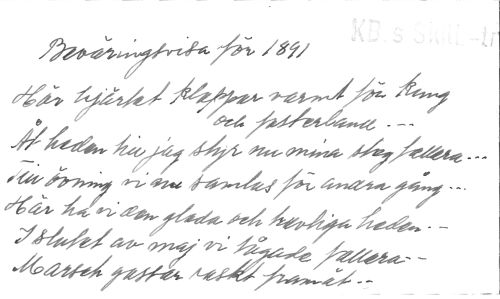 KB.s
Beväringsvisa för 1891
Här hjärtat klappar varmt för kung
och fosterland ---
Åt heden hu jag styr nu mina steg fallera ...
Till övning vi nu samlas för andra gång ...
Här ha vi den glada och trevliga heden --
I slutet av maj vi tågade fallera --
Marsch gossar raskt framåt --